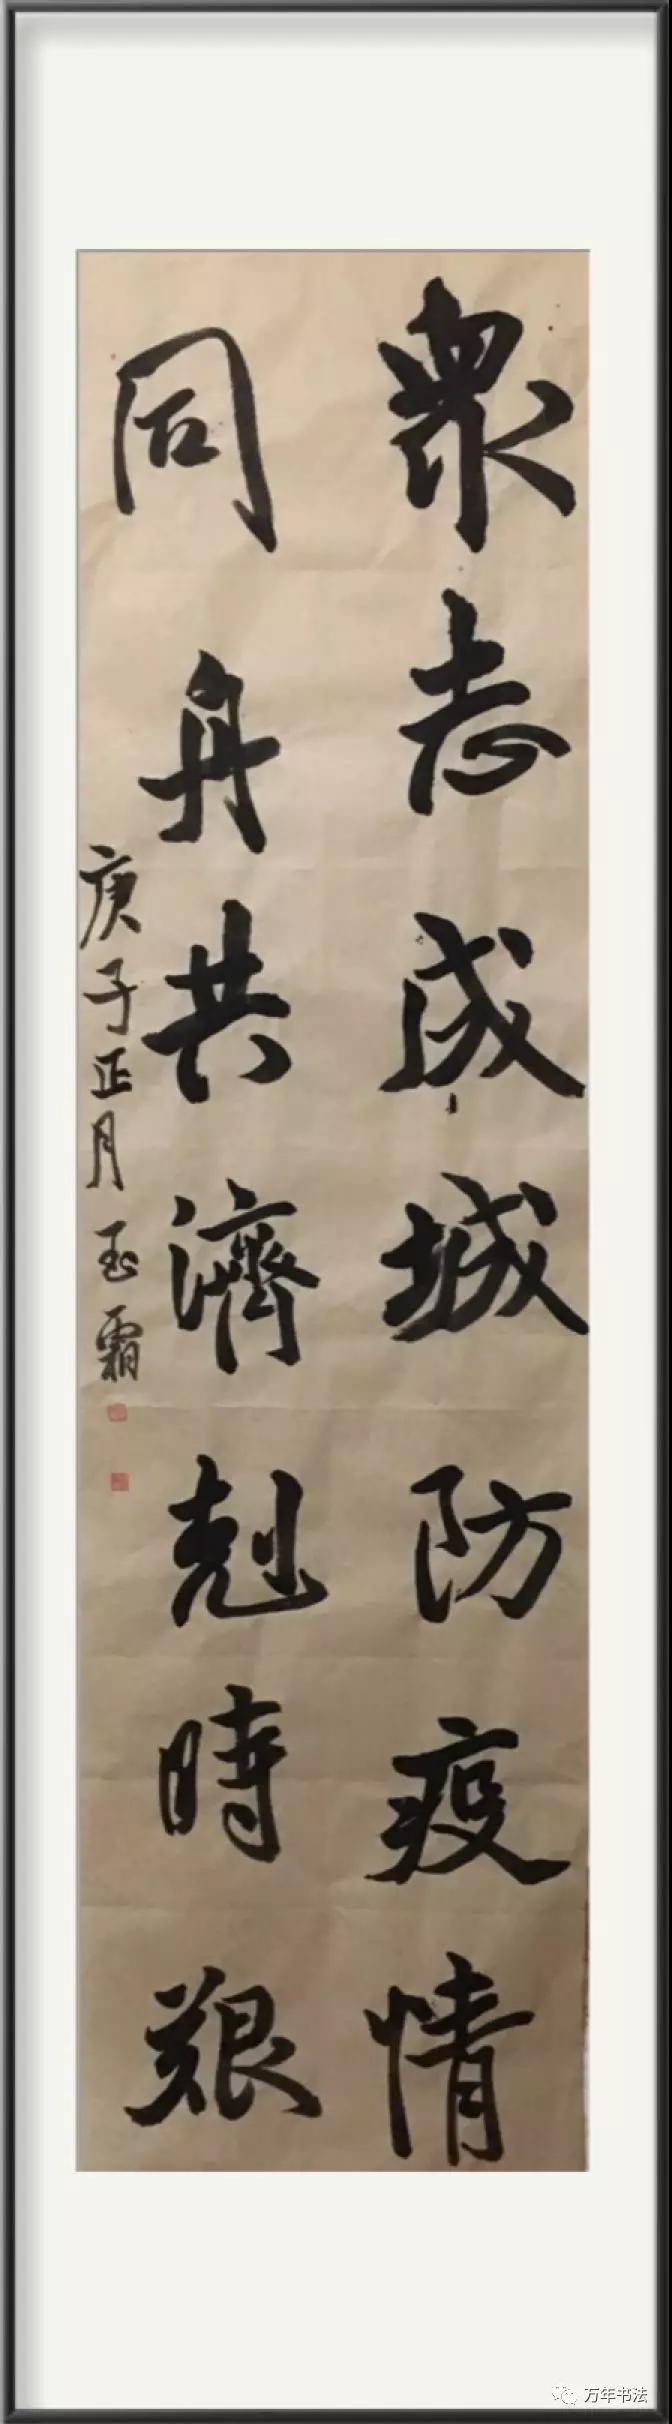 衆志成城防疫情
同舟共濟剋時艱
庚子正月玉霜
万年书法